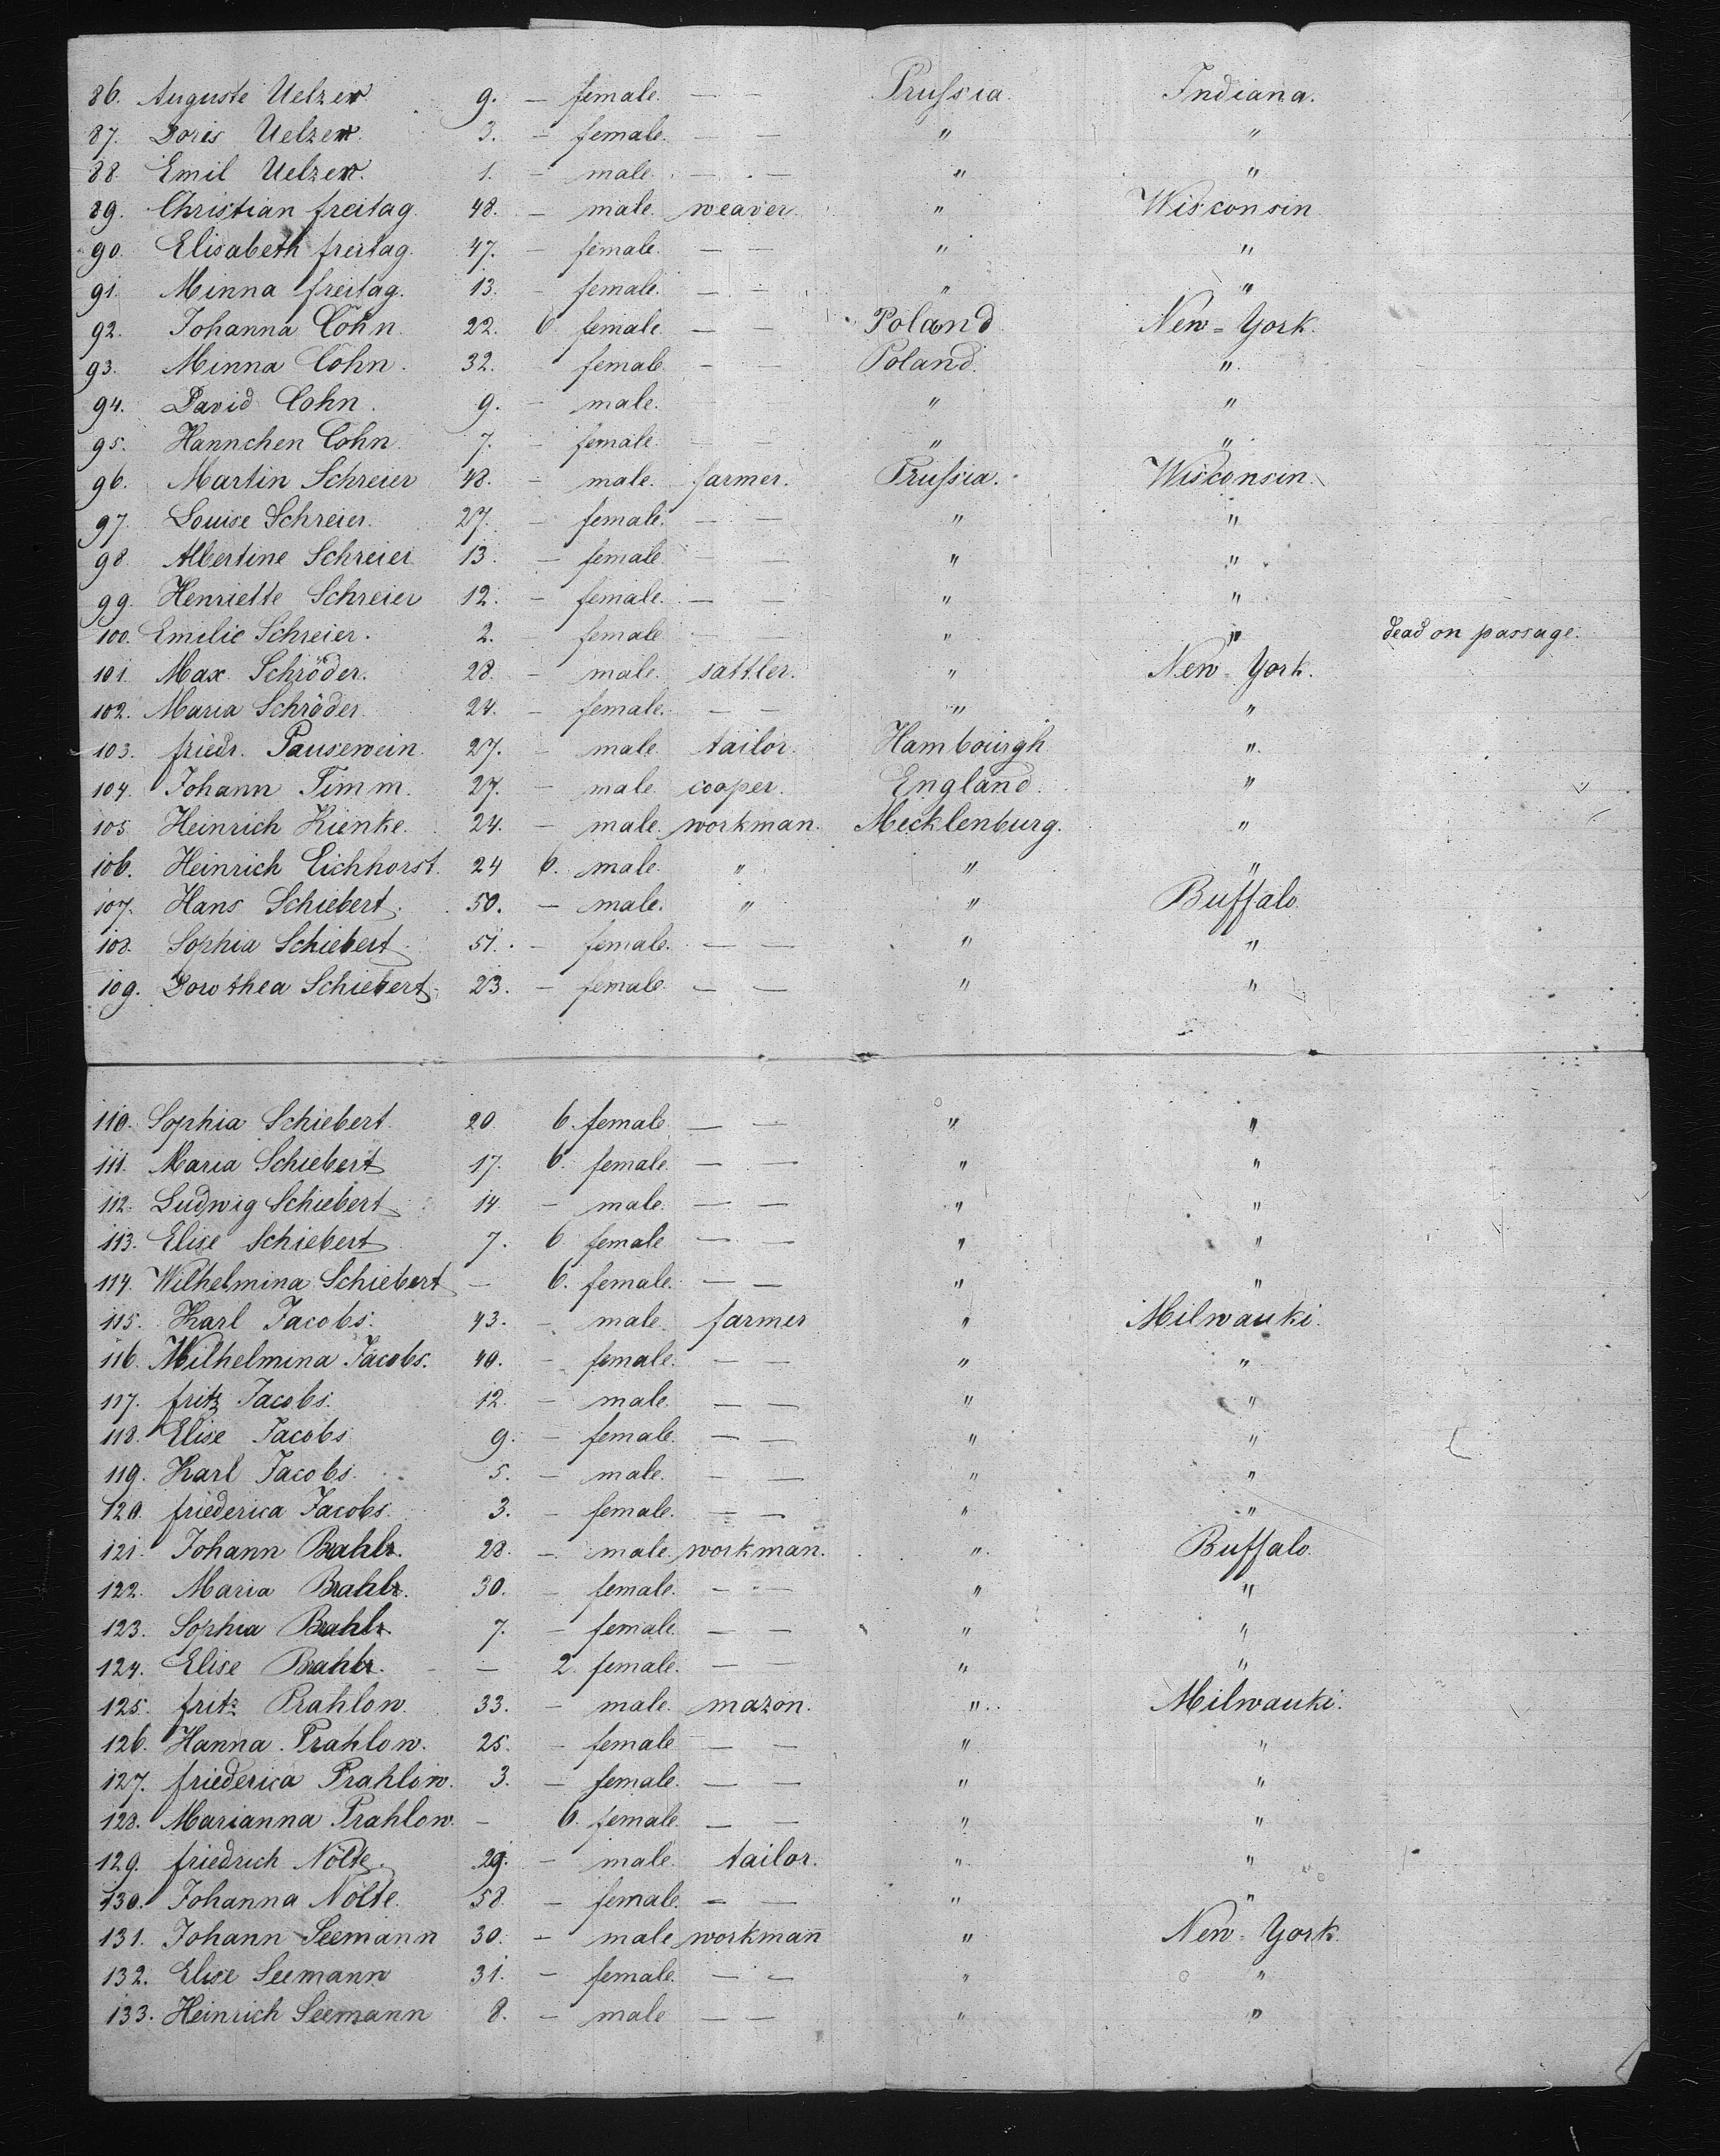 86. Auguste Uelzen 9. — female. — — Prussia. Indiana.
87. Doris Uelzen. 3. — female. — — " "
88. Emil Uelzen. 1. — male. — — " "
89. Christian freitag. 48. — male. weaver. " Wisconsin
90. Elisabeth freitag. 47. — female. — — " "
91. Minna freitag. 13. — female. — — " "
92. Johanna Cohn 22. 6. female. — — Poland New-York.
93. Minna Cohn. 32. female. — — Poland. "
94. David Cohn. 9. — male. " "
95. Hannchen Cohn 7. — female — — " "
96. Martin Schreier 48. — male. farmer. Prussia. Wisconsin.
97. Louise Schreier. 27. — female. — — " "
98. Albertine Schreier 13. — female. — — " "
99. Henriette Schreier 12. — female. — — " "
100. Emilie Schreier. 2. — female " " dead on passage.
101. Max Schröder. 28. — male. sattler. " New-York.
102. Maria Schröder. 24. — female. — — " "
103. friedr. Pausewein. 27. — male. tailor. Hambourgh "
104. Johann Timm. 27. — male. cooper. England. "
105. Heinrich Kienke. 24. — male. workman. Mecklenburg. "
106. Heinrich Eichhorst. 24 6. male. " " "
107. Hans Schiebert. 50. — male. " " Buffalo
108. Sophia Schiebert. 51. — female. — — " "
109. Dorothea Schiebert. 23. — female. — — " "
110. Sophia Schiebert. 20. 6. female — — " "
111. Maria Schiebert 17. 6. female. — — " "
112. Ludwig Schiebert 14 — male. — — " "
113. Elise Schiebert 7. 6 female — — " "
114. Wilhelmina Schiebert — 6. female. — — " "
115. Karl Jacobs. 43. — male. farmer " Milwauki.
116. Wilhelmina Jacobs. 40. — female. — — " "
117. fritz Jacobs. 12. — male. — — " "
118. Elise Jacobs 9. — female. — — " "
119. Karl Jacobs. 5. — male. — — " "
120. friederica Jacobs. 3. — female. — — " "
121. Johann 28. — male. workman. " Buffalo.
122. Maria 30. — female. — — " "
123. Sophia 7. — female. — — " "
124. Elise — 2. female. — — " "
125. fritz Prahlow. 33. — male. mazon. " Milwauki.
126. Hanna Prahlow. 25. — female — — " "
127. friederica Prahlow. 3. — female. — — " "
128. Marianna Prahlow. — 6. female. — — " "
129. friedrich Nölte. 29. — male. tailor. " "
130. Johanna Nölte. 58. — female. — — " "
131. Johann Seemann 30. — male workman " New-York.
132. Elise Seemann 31. — female. — — " "
133. Heinrich Seemann 8. — male — — " "